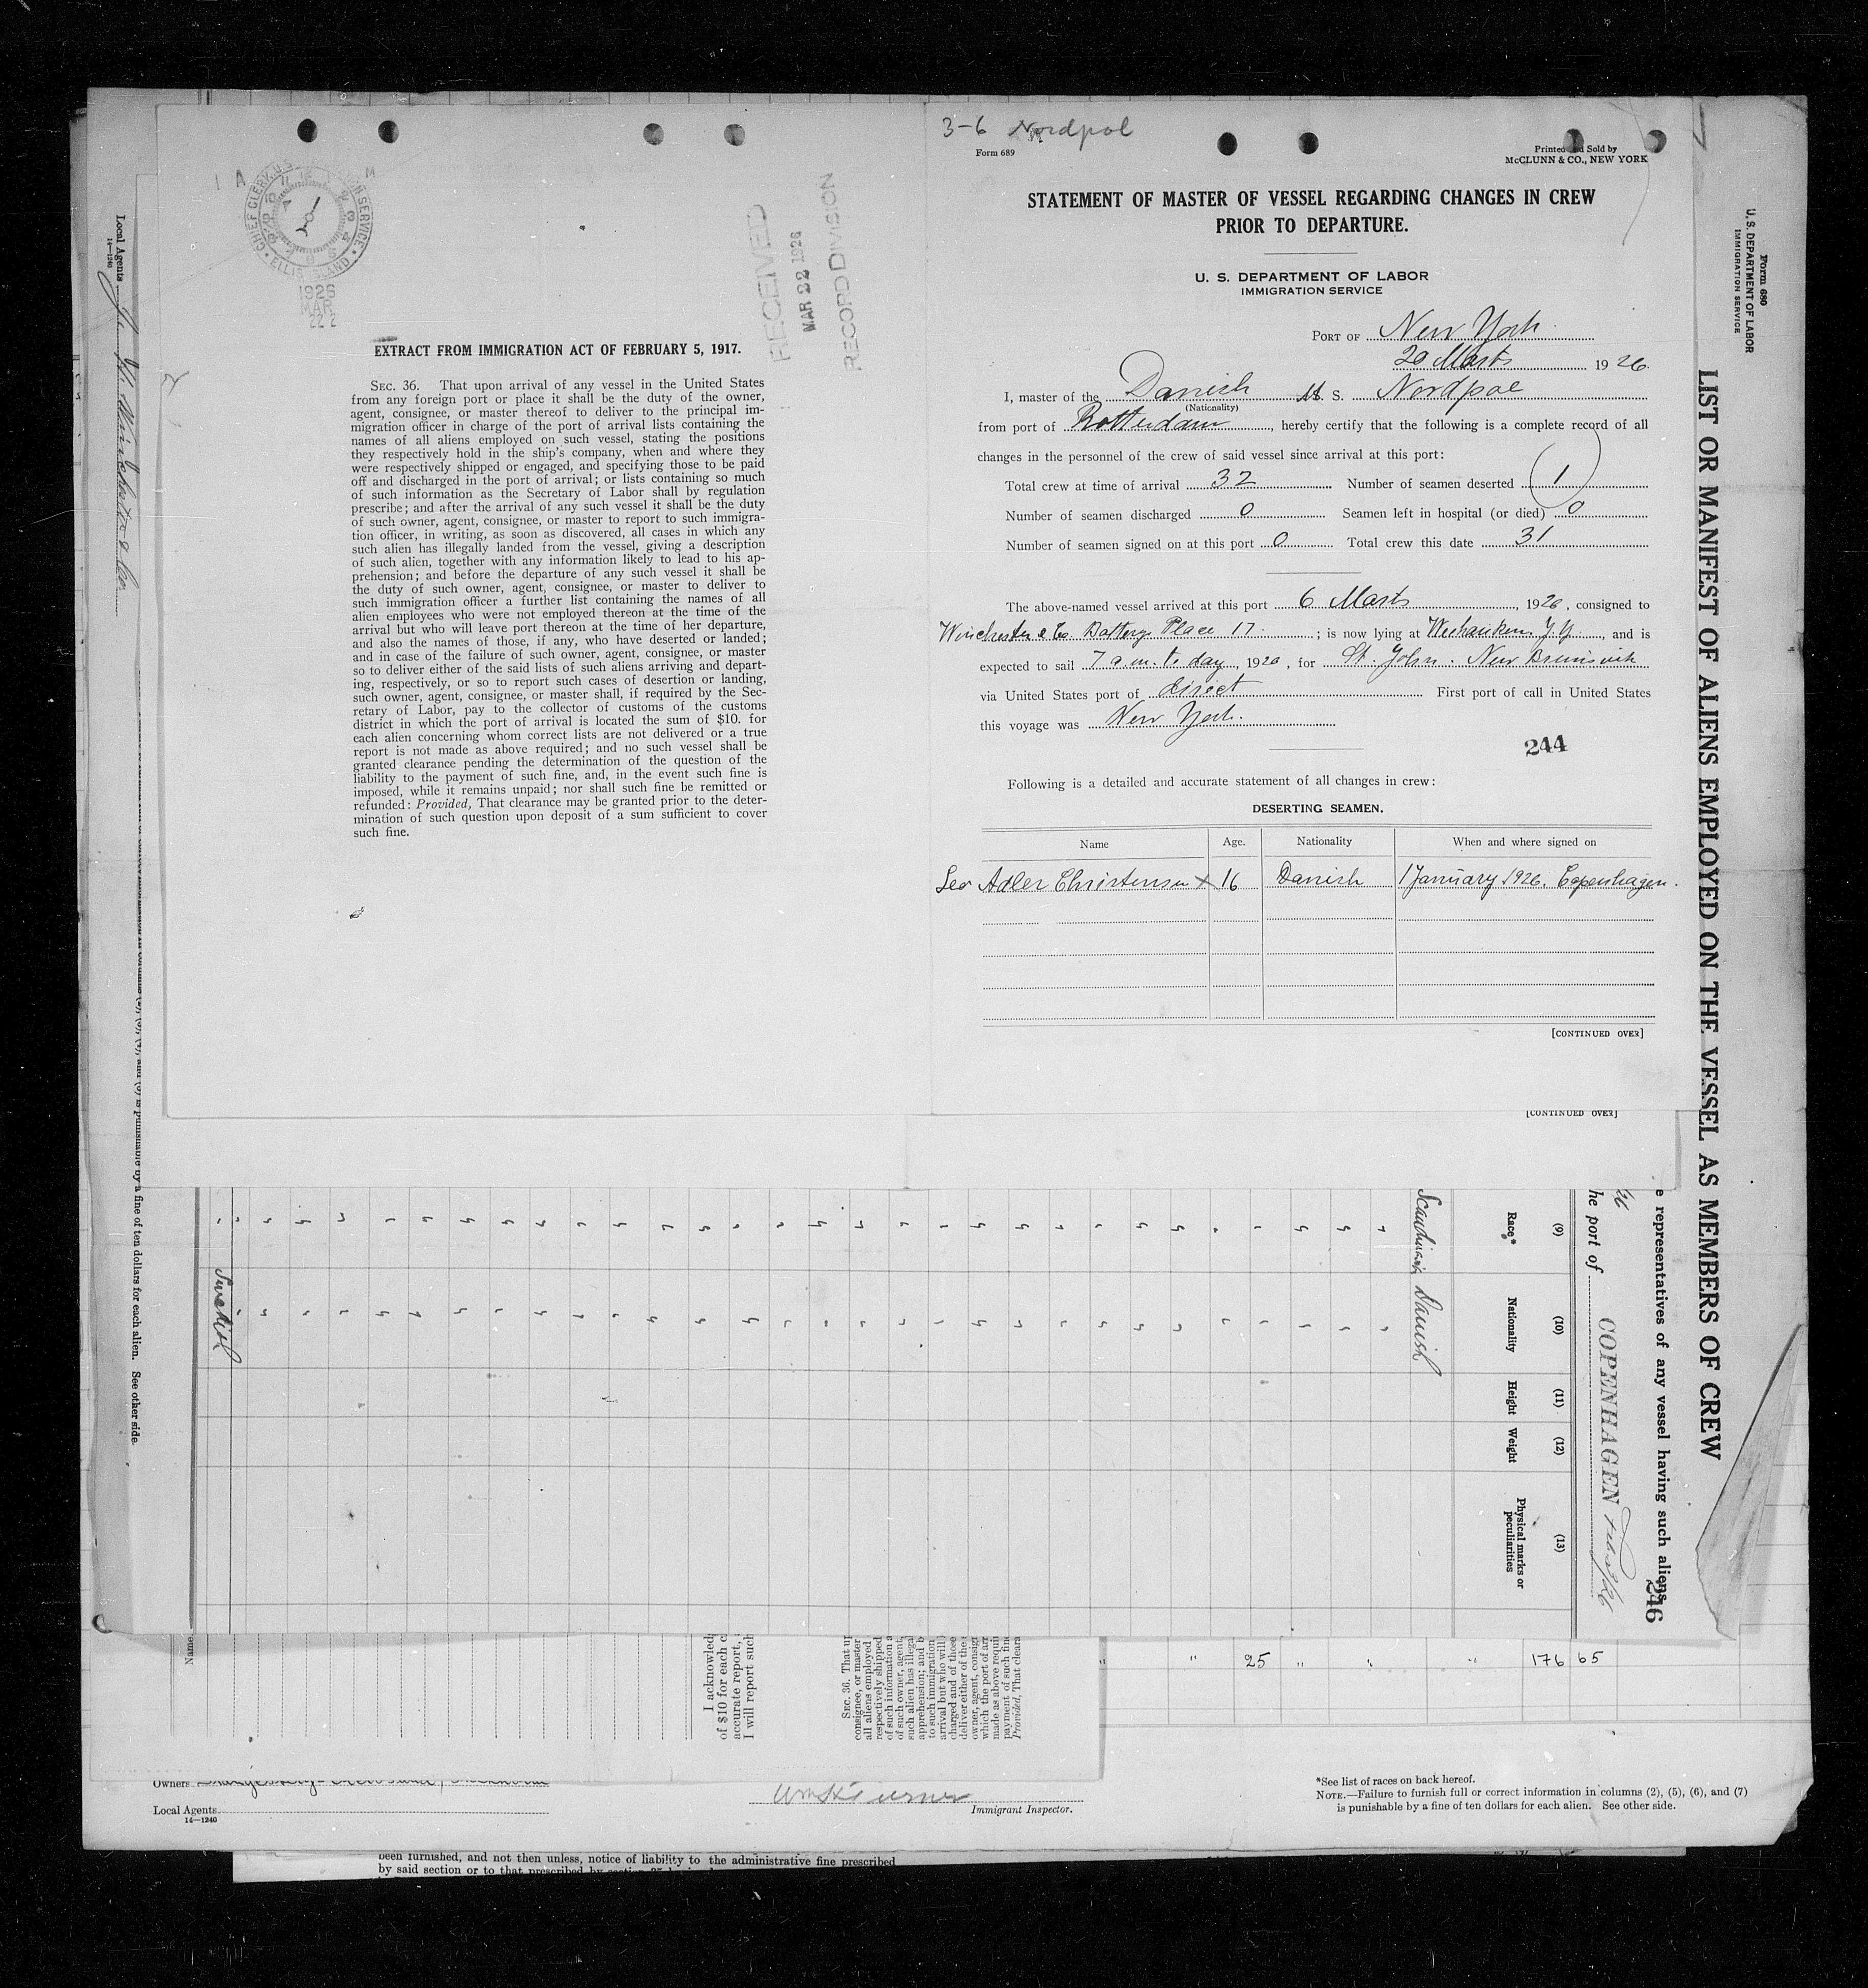 3-6 Nordpol
Form 689
Printed and Sold by
McCLUNN & CO., NEW YORK
STATEMENT OF MASTER OF VESSEL REGARDING CHANGES IN CREW
PRIOR TO DEPARTURE.
U. S. DEPARTMENT OF LABOR
IMMIGRATION SERVICE
PORT OF New York.
20 Marts 1926.
I, master of the Danish M S. Nordpol
(Nationality)
from port of Rotterdam, hereby certify that the following is a complete record of all
changes in the personnel of the crew of said vessel since arrival at this port:
Total crew at time of arrival 32 Number of seamen deserted 1
Number of seamen discharged 0 Seamen left in hospital (or died) 0
Number of seamen signed on at this port 0 Total crew this date 31
The above-named vessel arrived at this port 6 Marts, 1926, consigned to
Winchester & Co. Battery Place 17. ; is now lying at Wechauken, and is
expected to sail 7 a.m. to day, 1926, for St. John. New Brunsvik
via United States port of direct First port of call in United States
this voyage was New York.
244
Following is a detailed and accurate statement of all changes in crew:
DESERTING SEAMEN.
Name Age. Nationality When and where signed on
Leo Adler Christensen x 16 Danish 1 January 1926. Copenhagen.
[CONTINUED OVER]
[CONTINUED OVER]
CHIEF CLERK, U.S. IMMIGRATION SERVICE
ELLIS ISLAND
1926
MAR
22
RECEIVED
MAR 22 1926
RECORD DIVISION
EXTRACT FROM IMMIGRATION ACT OF FEBRUARY 5, 1917.
SEC. 36. That upon arrival of any vessel in the United States
from any foreign port or place it shall be the duty of the owner,
agent, consignee, or master thereof to deliver to the principal im-
migration officer in charge of the port of arrival lists containing the
names of all aliens employed on such vessel, stating the positions
they respectively hold in the ship's company, when and where they
were respectively shipped or engaged, and specifying those to be paid
off and discharged in the port of arrival; or lists containing so much
of such information as the Secretary of Labor shall by regulation
prescribe; and after the arrival of any such vessel it shall be the duty
of such owner, agent, consignee, or master to report to such immigra-
tion officer, in writing, as soon as discovered, all cases in which any
such alien has illegally landed from the vessel, giving a description
of such alien, together with any information likely to lead to his ap-
prehension; and before the departure of any such vessel it shall be
the duty of such owner, agent, consignee, or master to deliver to
such immigration officer a further list containing the names of all
alien employees who were not employed thereon at the time of the
arrival but who will leave port thereon at the time of her departure,
and also the names of those, if any, who have deserted or landed;
and in case of the failure of such owner, agent, consignee, or master
so to deliver either of the said lists of such aliens arriving and depart-
ing, respectively, or so to report such cases of desertion or landing,
such owner, agent, consignee, or master shall, if required by the Sec-
retary of Labor, pay to the collector of customs of the customs
district in which the port of arrival is located the sum of $10. for
each alien concerning whom correct lists are not delivered or a true
report is not made as above required; and no such vessel shall be
granted clearance pending the determination of the question of the
liability to the payment of such fine, and, in the event such fine is
imposed, while it remains unpaid; nor shall such fine be remitted or
refunded: Provided, That clearance may be granted prior to the deter-
mination of such question upon deposit of a sum sufficient to cover
such fine.
Form 680
U. S. DEPARTMENT OF LABOR
IMMIGRATION SERVICE
LIST OR MANIFEST OF ALIENS EMPLOYED ON THE VESSEL AS MEMBERS OF CREW
e representatives of any vessel having such aliens
246
he port of COPENHAGEN
(9) (10) (11) (12) (13)
Race* Nationality Height Weight Physical marks or
peculiarities
Danish
Swedish
Local Agents
14-1240
is punishable by a fine of ten dollars for each alien. See other side.
Name
I acknowledg
of $10 for each
accurate report,
I will report such
SEC. 36. That up
consignee, or master
all aliens employed
respectively shipped
of such information a
of such owner, agent,
such alien has illega
apprehension; and b
to such immigration
arrival but who will
charged and of those
deliver either of the
owner, agent, consig
which the port of arr
made as above requi
payment of such fine
Provided, That cleara
" " 25 " " " 176 65
Owners
Local Agents
14-1240
Immigrant Inspector.
*See list of races on back hereof.
NOTE.—Failure to furnish full or correct information in columns (2), (5), (6), and (7)
is punishable by a fine of ten dollars for each alien. See other side.
been furnished, and not then unless, notice of liability to the administrative fine prescribed
by said section or to that prescribed by section